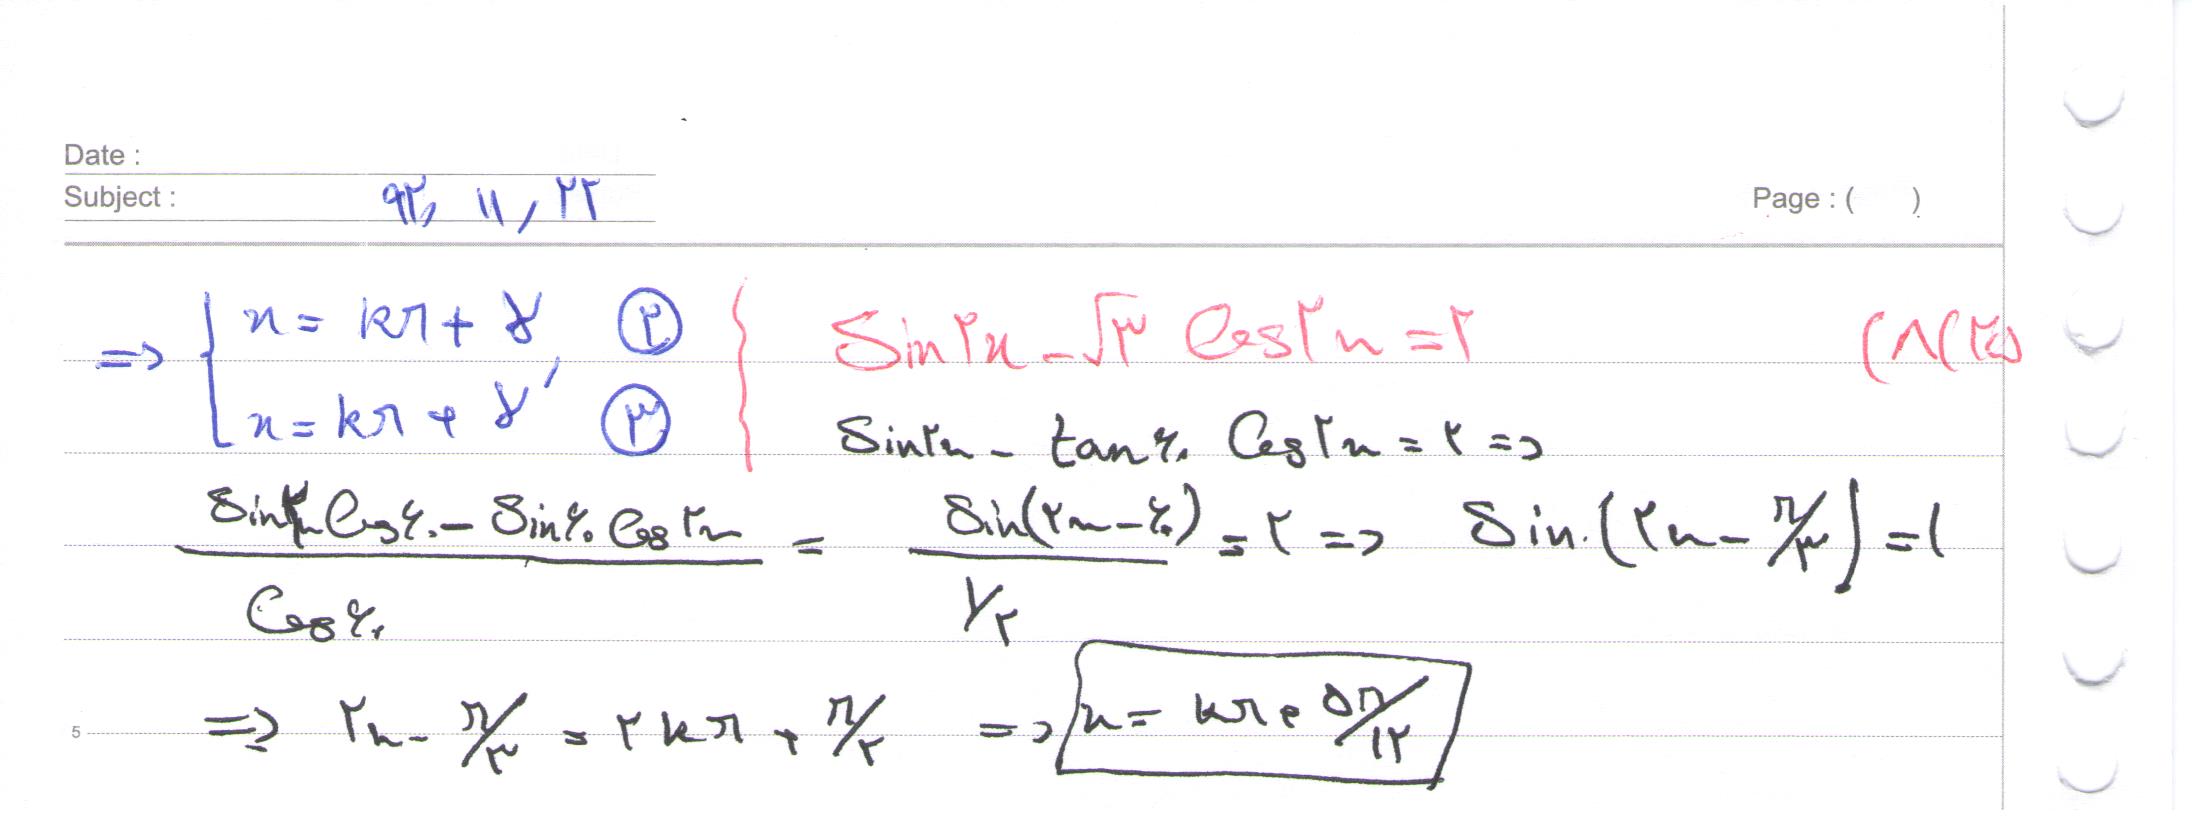 Date :
Subject : ۹۲, ۱۱, ۲۲
Page : ( )
=> { x = kπ + γ, ②
x = kπ + γ', ③
Sin۲x - √۳ Cos۲x = ۲
Sin۲x - tan۶۰ Cos۲x = ۲ =>
(Sin۲x Cos۶۰ - Sin۶۰ Cos۲x) / Cos۶۰ = Sin(۲x - ۶۰) / ۱/۲ = ۲ => Sin(۲x - π/۳) = ۱
5 => ۲x - π/۳ = ۲kπ + π/۲ => x = kπ + ۵π/۱۲